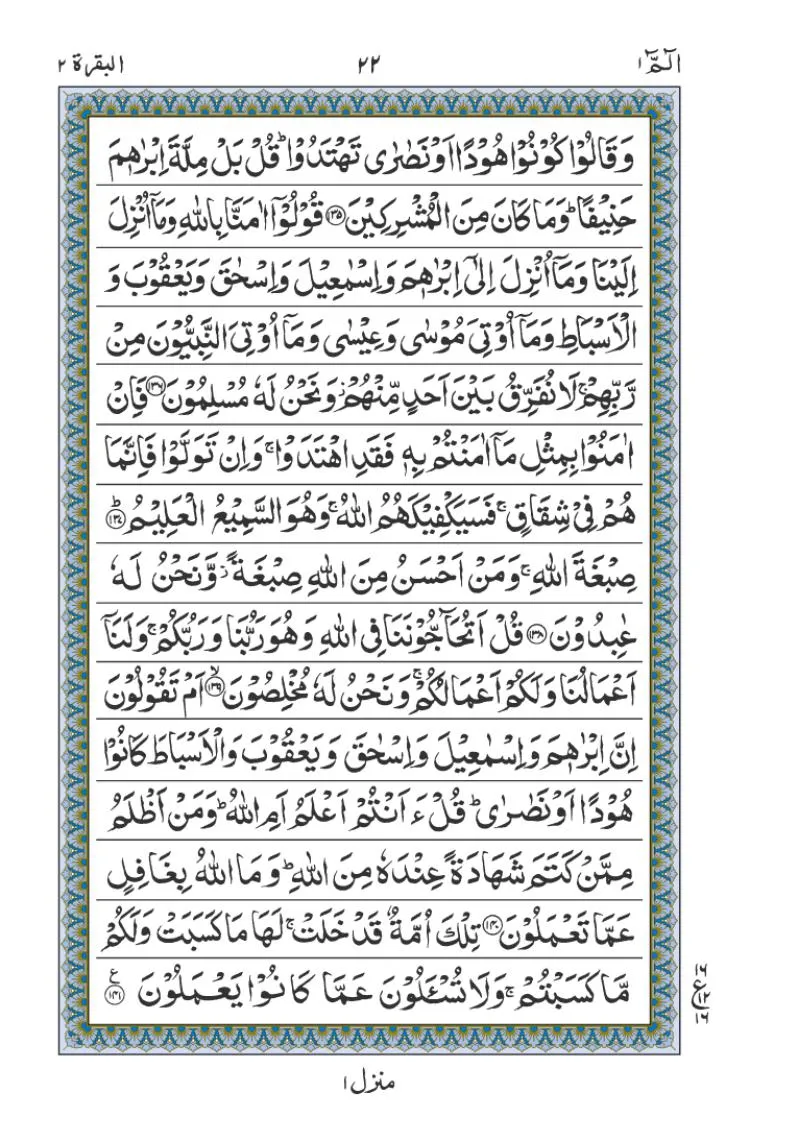 الٓمّٓ ١ ٢٢ البقرة ٢
وَقَالُوْا كُوْنُوْا هُوْدًا اَوْ نَصٰرٰى تَهْتَدُوْا ؕ قُلْ بَلْ مِلَّةَ اِبْرٰهٖمَ
حَنِيْفًا ؕ وَمَا كَانَ مِنَ الْمُشْرِكِيْنَ ﴿۱۳۵﴾ قُوْلُوْۤا اٰمَنَّا بِاللّٰهِ وَمَاۤ اُنْزِلَ
اِلَيْنَا وَمَاۤ اُنْزِلَ اِلٰۤى اِبْرٰهٖمَ وَاِسْمٰعِيْلَ وَاِسْحٰقَ وَيَعْقُوْبَ وَ
الْاَسْبَاطِ وَمَاۤ اُوْتِىَ مُوْسٰى وَعِيْسٰى وَمَاۤ اُوْتِىَ النَّبِيُّوْنَ مِنْ
رَّبِّهِمْ ۚ لَا نُفَرِّقُ بَيْنَ اَحَدٍ مِّنْهُمْ ۖ وَنَحْنُ لَهٗ مُسْلِمُوْنَ ﴿۱۳۶﴾ فَاِنْ
اٰمَنُوْا بِمِثْلِ مَاۤ اٰمَنْتُمْ بِهٖ فَقَدِ اهْتَدَوْا ۚ وَاِنْ تَوَلَّوْا فَاِنَّمَا
هُمْ فِيْ شِقَاقٍ ۚ فَسَيَكْفِيْكَهُمُ اللّٰهُ ۚ وَهُوَ السَّمِيْعُ الْعَلِيْمُ ؕ ﴿۱۳۷﴾
صِبْغَةَ اللّٰهِ ۚ وَمَنْ اَحْسَنُ مِنَ اللّٰهِ صِبْغَةً ؗ وَّنَحْنُ لَهٗ
عٰبِدُوْنَ ﴿۱۳۸﴾ قُلْ اَتُحَآجُّوْنَنَا فِى اللّٰهِ وَهُوَ رَبُّنَا وَرَبُّكُمْ ۚ وَلَنَاۤ
اَعْمَالُنَا وَلَكُمْ اَعْمَالُكُمْ ۚ وَنَحْنُ لَهٗ مُخْلِصُوْنَ ۙ ﴿۱۳۹﴾ اَمْ تَقُوْلُوْنَ
اِنَّ اِبْرٰهٖمَ وَاِسْمٰعِيْلَ وَاِسْحٰقَ وَيَعْقُوْبَ وَالْاَسْبَاطَ كَانُوْا
هُوْدًا اَوْ نَصٰرٰى ؕ قُلْ ءَاَنْتُمْ اَعْلَمُ اَمِ اللّٰهُ ؕ وَمَنْ اَظْلَمُ
مِمَّنْ كَتَمَ شَهَادَةً عِنْدَهٗ مِنَ اللّٰهِ ؕ وَمَا اللّٰهُ بِغَافِلٍ
عَمَّا تَعْمَلُوْنَ ﴿۱۴۰﴾ تِلْكَ اُمَّةٌ قَدْ خَلَتْ ۚ لَهَا مَا كَسَبَتْ وَلَكُمْ
مَّا كَسَبْتُمْ ۚ وَلَا تُسْـَٔلُوْنَ عَمَّا كَانُوْا يَعْمَلُوْنَ ﴿۱۴۱﴾ ع
١٦
ع ١٢
١٦
منزل ١